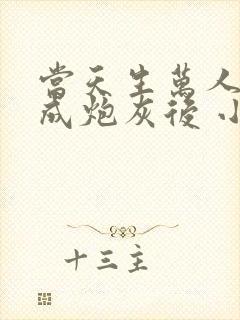 當天生萬人
成炮灰後 小
十三主